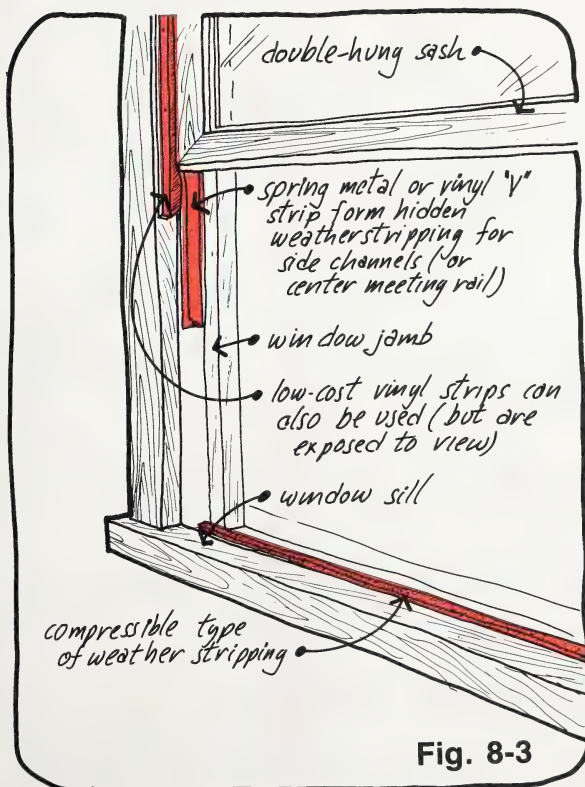 double-hung sash
spring metal or vinyl "V"
strip form hidden
weatherstripping for
side channels (or
center meeting rail)
window jamb
low-cost vinyl strips can
also be used (but are
exposed to view)
window sill
compressible type
of weather stripping
Fig. 8-3